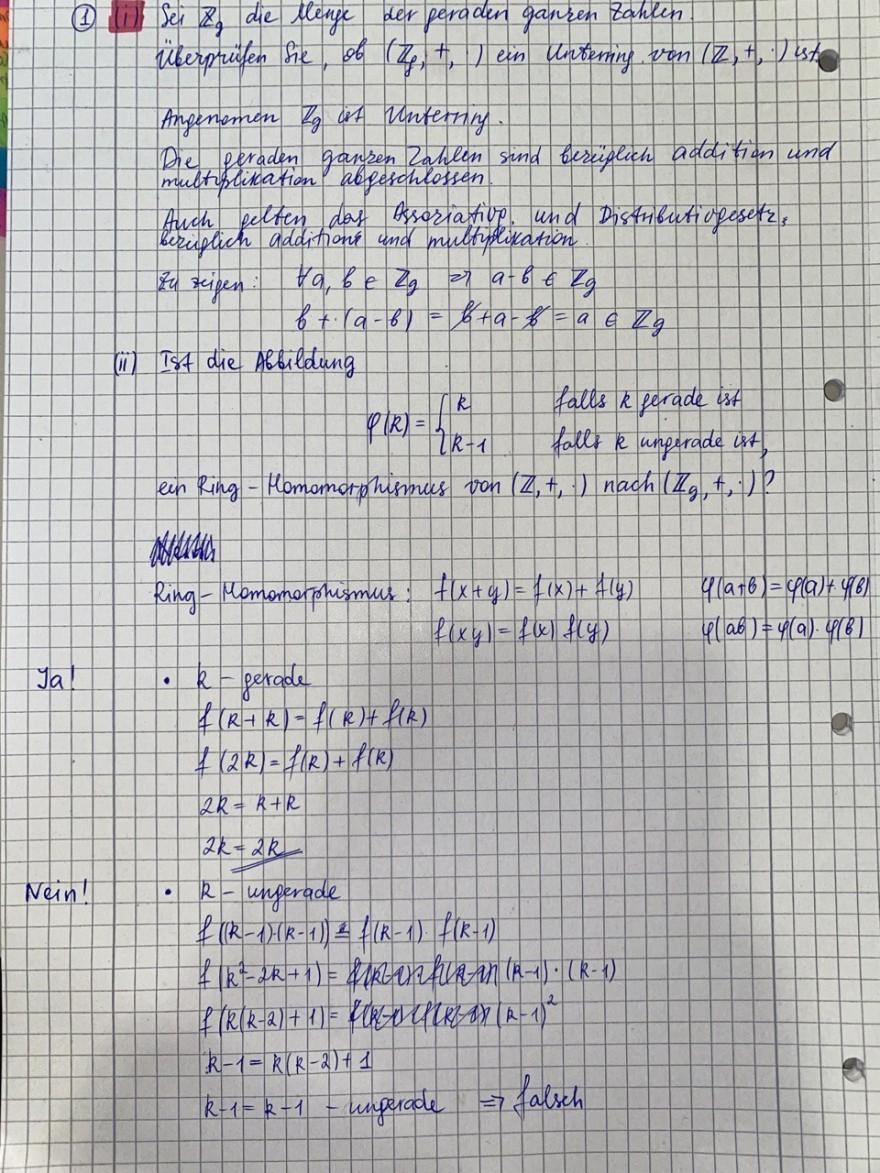 ① (i) Sei ℤg die Menge der geraden ganzen Zahlen.
Überprüfen Sie, ob (ℤg, +, ·) ein Unterring von (ℤ, +, ·) ist.
Angenomen ℤg ist Unterring.
Die geraden ganzen Zahlen sind bezüglich addition und
multiplikation abgeschlossen.
Auch gelten das Assoziativg. und Distributivgesetz,
bezüglich additions und multiplikation.
Zu zeigen: ∀a, b ∈ ℤg ⇒ a-b ∈ ℤg
b + (a-b) = b+a-b = a ∈ ℤg
(ii) Ist die Abbildung
φ(k) = { k falls k gerade ist
k-1 falls k ungerade ist,
ein Ring-Homomorphismus von (ℤ, +, ·) nach (ℤg, +, ·)?
Ring-Homomorphismus: f(x+y) = f(x) + f(y) φ(a+b) = φ(a)+φ(b)
f(xy) = f(x) f(y) φ(ab) = φ(a)·φ(b)
Ja! • k - gerade
f(k+k) = f(k) + f(k)
f(2k) = f(k) + f(k)
2k = k+k
2k = 2k
Nein! • k - ungerade
f((k-1)·(k-1)) = f(k-1) · f(k-1)
f(k²-2k+1) = (k-1)·(k-1)
f(k(k-2)+1) = (k-1)²
k-1 = k(k-2)+1
k-1 = k-1 - ungerade ⇒ falsch